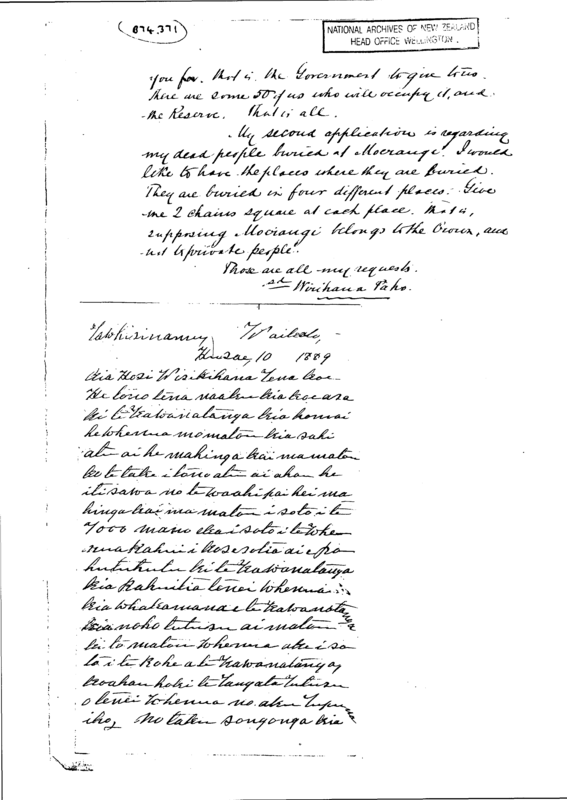 (874,371)
NATIONAL ARCHIVES OF NEW ZEALAND
HEAD OFFICE WELLINGTON.
you for. that is the Government to give to us.
There are some 50 of us who will occupy it, and
the Reserve. That is all.
My second application is regarding
my dead people buried at Mocrangi. I would
like to have the places where they are buried.
They are buried in four different places. Give
me 2 chains square at each place. that is,
supposing Mocrangi belongs to the Crown, and
not to private people.
Those are all my requests.
sd Wirihana
Waikato,
10 1889
Kia Hosi Tena koe
He tono tena naaku kia koe ara
ki te Kawanatanga kia homai
he whenua mo matou kia
atu ai he mahinga kai ma matou
ko te take i tono atu ai ahau he
iti no te waahi pai hei ma
hinga kai ma matou i roto i te
7000 mano eka i roto i te whe
nua
ki te Kawanatanga
tenei whenua
kia whakamana e te Kawanatanga
kia noho tuturu ai matou
ki to matou whenua
i te a te Kawanatanga
koahau hoki te tangata tuturu
o tenei whenua no aku tupuna
iho, No taku rongonga kia